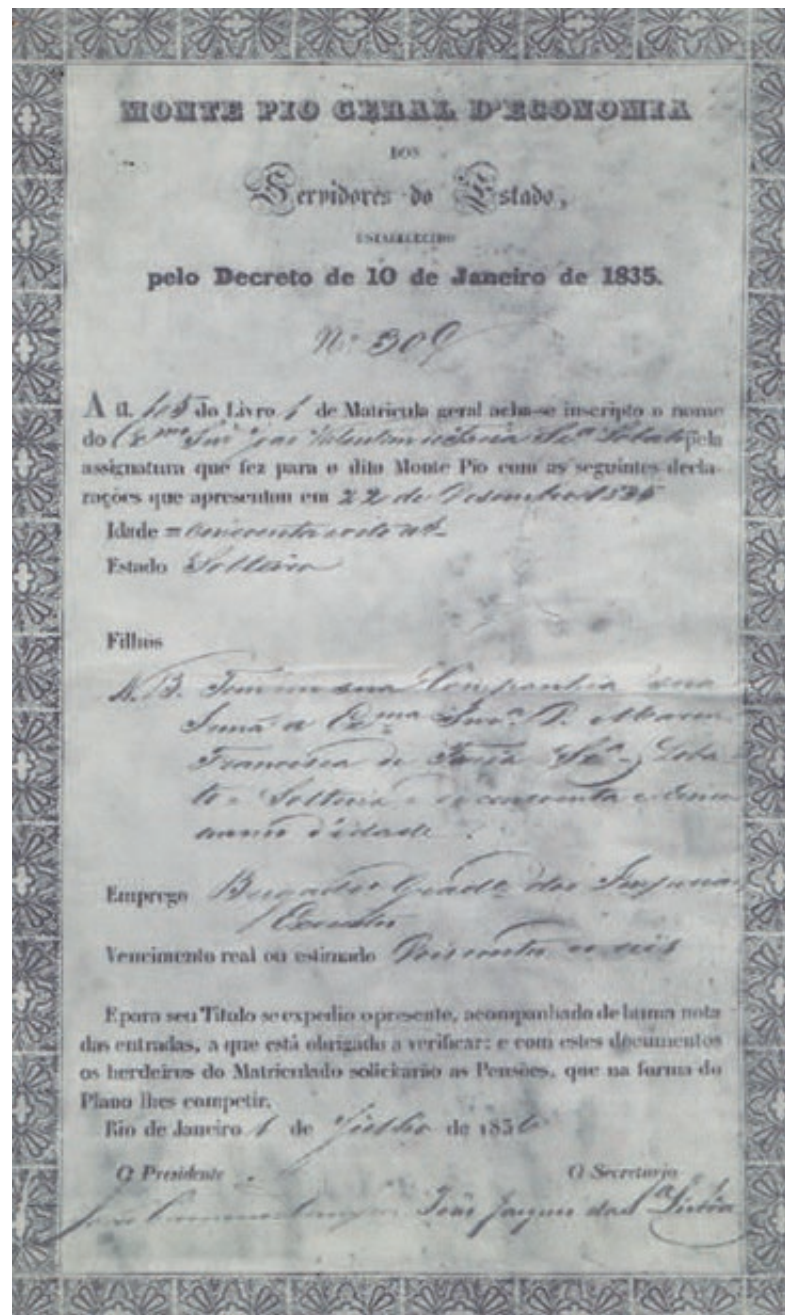 MONTE PIO GERAL D'ECONOMIA
DOS
Servidores do Estado,
ESTABELECIDO
pelo Decreto de 10 de Janeiro de 1835.
Nº 309
A fl. 105 do Livro 1 de Matricula geral acha-se inscripto o nome
do Exmo Snr José Valentim Sª Lobato pela
assignatura que fez para o dito Monte Pio com as seguintes decla-
rações que apresentou em 22 de Desembro 1835
Idade =
Estado Solteiro
Filhos
N.B. Tem em sua Companhia sua
Irmã a Exma Snrª D. Maria
Francisca de Faria Sª Loba
to = Solteira = de cincoenta e
annos d'idade.
Emprego Brigadeiro Gradº
Vencimento real ou estimado Dois contos de reis
E para seu Titulo se expedio o presente, acompanhado de huma nota
das entradas, a que está obrigado a verificar: e com estes documentos
os herdeiros do Matriculado solicitarão as Pensões, que na forma do
Plano lhes competir.
Rio de Janeiro 1 de Julho de 1836
O Presidente O Secretario